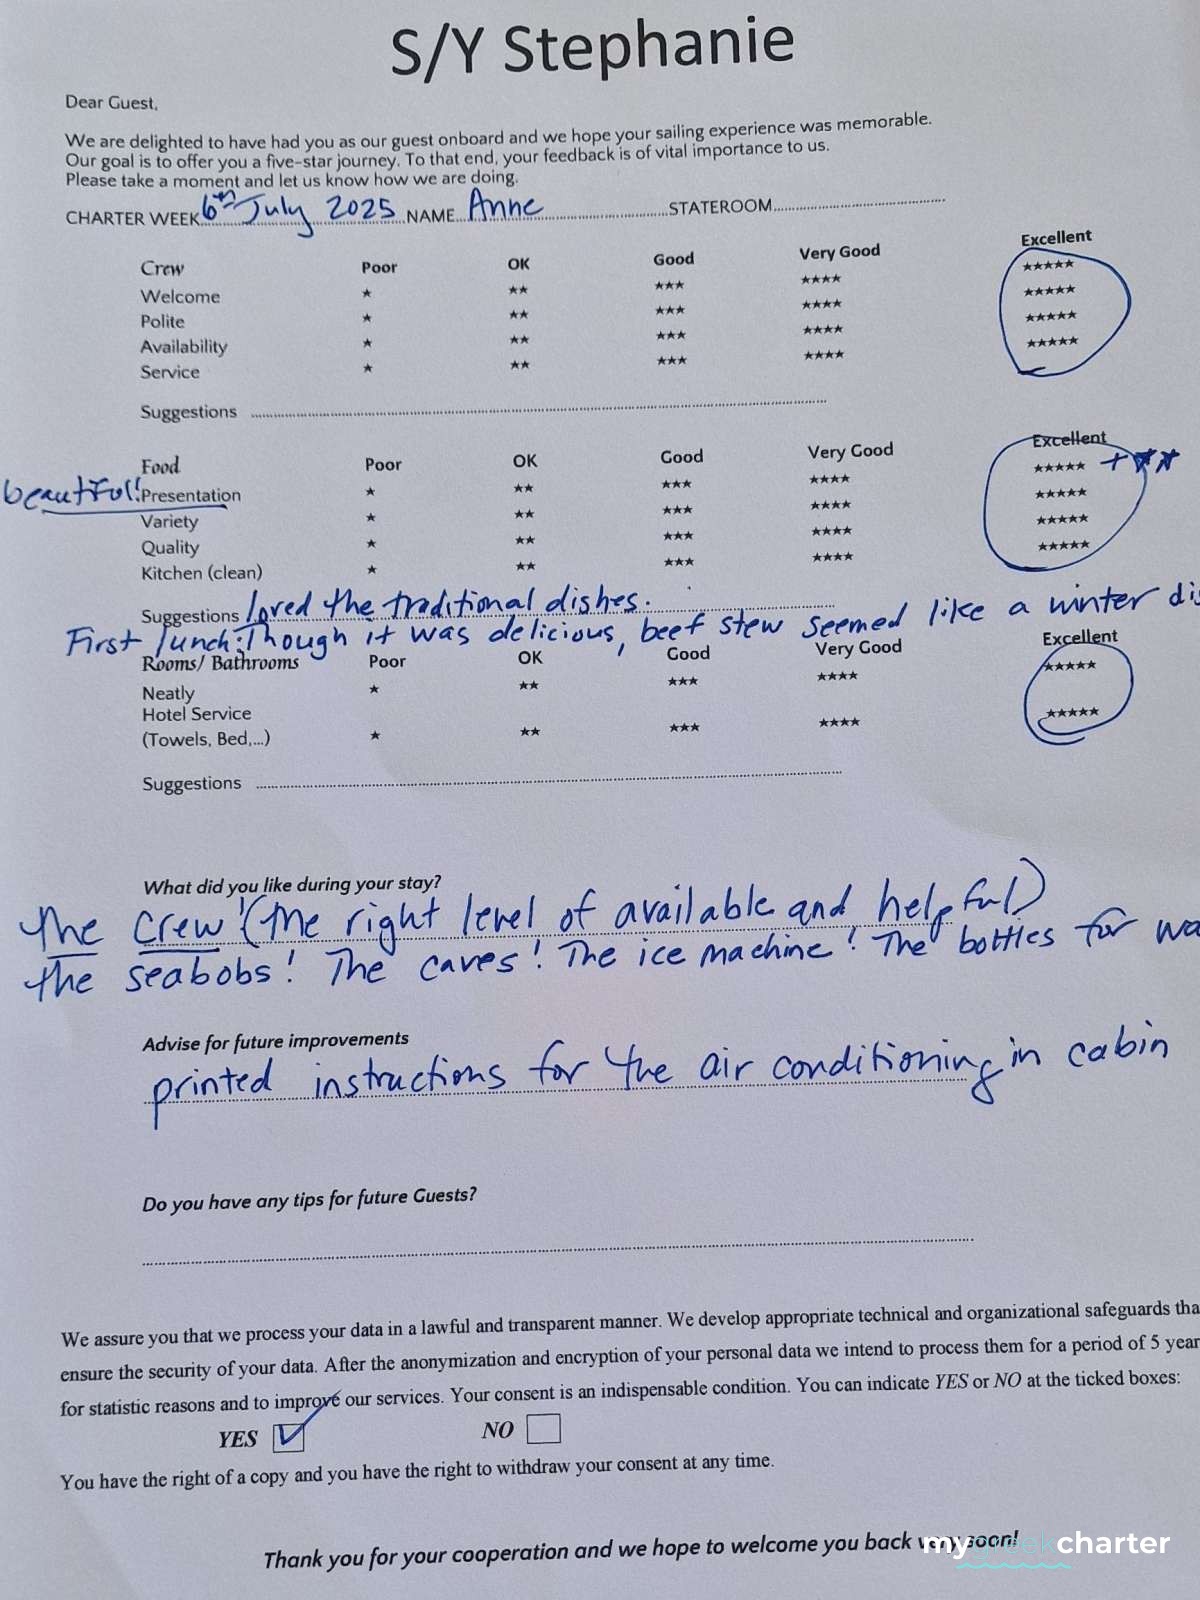 S/Y Stephanie
Dear Guest,
We are delighted to have had you as our guest onboard and we hope your sailing experience was memorable.
Our goal is to offer you a five-star journey. To that end, your feedback is of vital importance to us.
Please take a moment and let us know how we are doing.
CHARTER WEEK 6th July 2025 NAME Anne STATEROOM
Crew Poor OK Good Very Good Excellent
Welcome ★ ★★ ★★★ ★★★★ ★★★★★
Polite ★ ★★ ★★★ ★★★★ ★★★★★
Availability ★ ★★ ★★★ ★★★★ ★★★★★
Service ★ ★★ ★★★ ★★★★ ★★★★★
Suggestions
Food Poor OK Good Very Good Excellent
beautiful! Presentation ★ ★★ ★★★ ★★★★ ★★★★★ + ★★
Variety ★ ★★ ★★★ ★★★★ ★★★★★
Quality ★ ★★ ★★★ ★★★★ ★★★★★
Kitchen (clean) ★ ★★ ★★★ ★★★★ ★★★★★
Suggestions loved the traditional dishes.
First lunch: Though it was delicious, beef stew seemed like a winter dis
Rooms/ Bathrooms Poor OK Good Very Good Excellent
Neatly ★ ★★ ★★★ ★★★★ ★★★★★
Hotel Service
(Towels, Bed,...) ★ ★★ ★★★ ★★★★ ★★★★★
Suggestions
What did you like during your stay?
The crew! (the right level of available and helpful)
the seabobs! The caves! The ice machine! The bottles for wa
Advise for future improvements
printed instructions for the air conditioning in cabin
Do you have any tips for future Guests?
We assure you that we process your data in a lawful and transparent manner. We develop appropriate technical and organizational safeguards tha
ensure the security of your data. After the anonymization and encryption of your personal data we intend to process them for a period of 5 year
for statistic reasons and to improve our services. Your consent is an indispensable condition. You can indicate YES or NO at the ticked boxes:
YES NO
You have the right of a copy and you have the right to withdraw your consent at any time.
Thank you for your cooperation and we hope to welcome you back very soon!
mygreekcharter